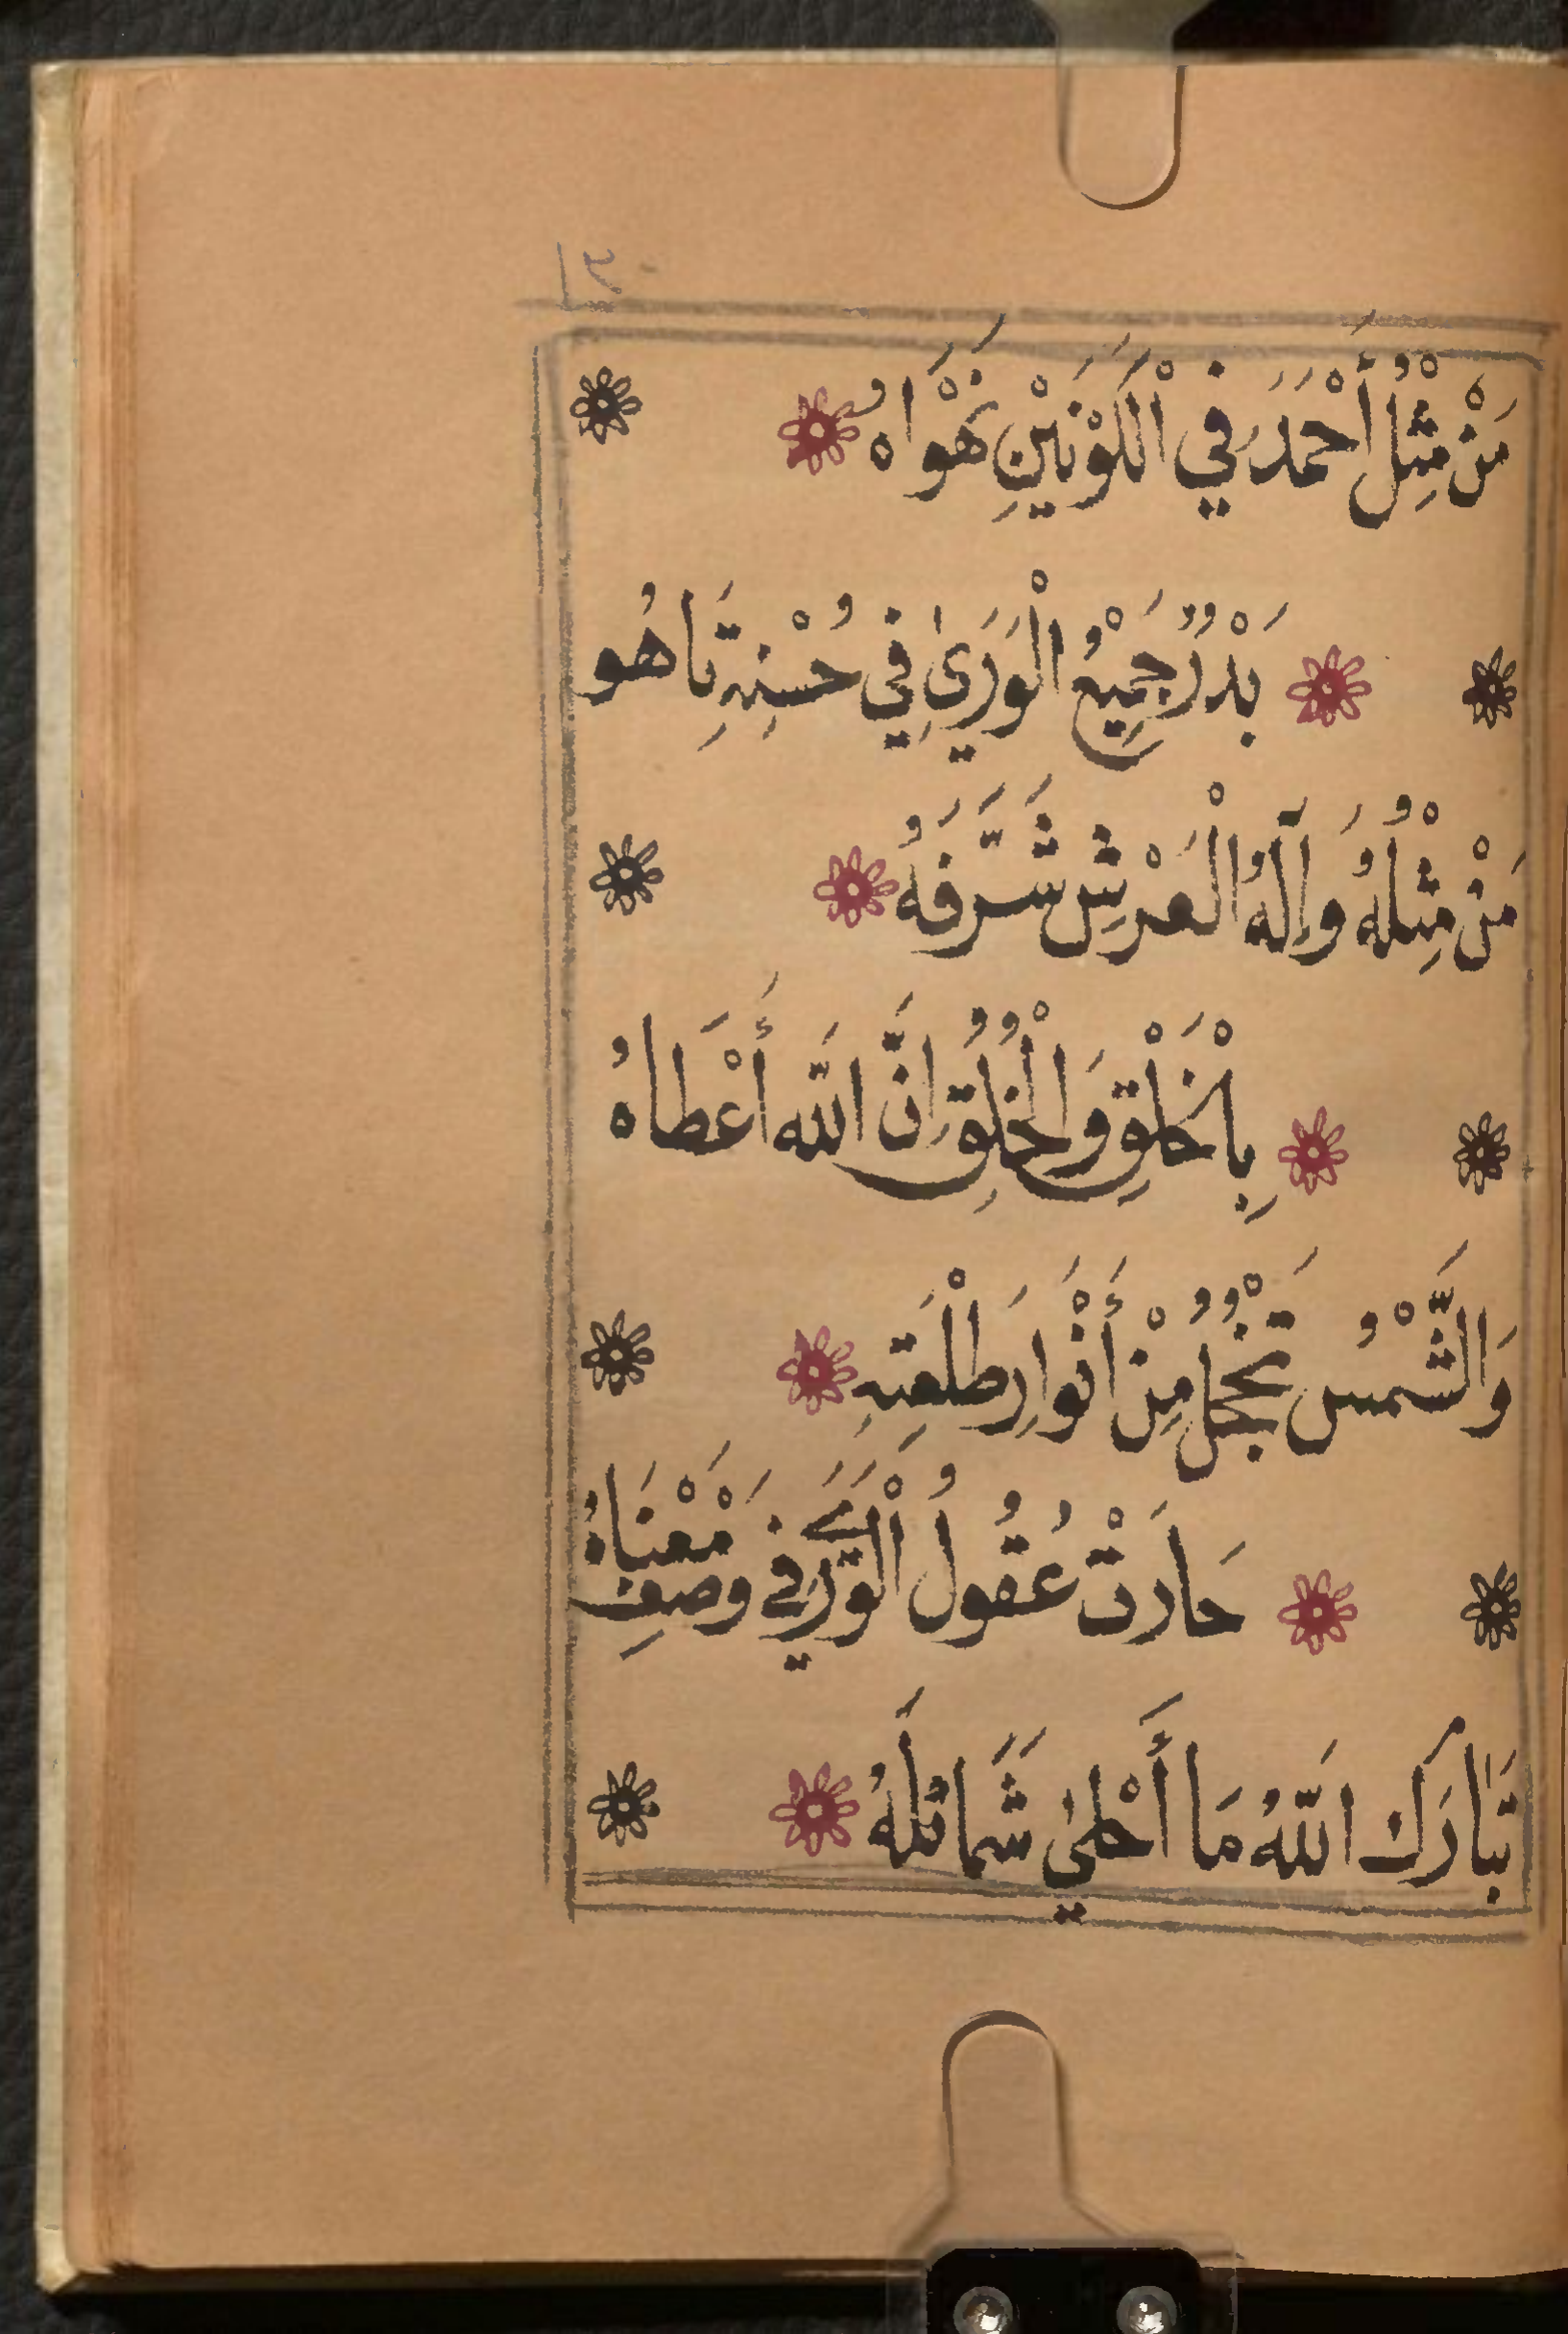 مَنْ مِثْلُ أَحْمَدَ فِي الْكَوْنَيْنِ نَهْوَاهُ
بَدْرٌ جَمِيْعُ الْوَرَىٰ فِي حُسْنِهِ تَاهُو
مَنْ مِثْلُهُ وَإِلٓهُ الْعَرْشِ شَرَّفَهُ
بِالْخَلْقِ وَالْخُلُقِ اِنَّ اللَّه أَعْطَاهُ
وَالشَّمْسُ تَخْجُلُ مِنْ أَنْوَارِ طَلْعَتِهِ
حَارَتْ عُقُولُ الْوَرَىٰ فِي وَصفِ مَعْنَاهُ
تَبَارَكَ اللَّهُ مَا أَحْلىٰ شَمَائلَهُ